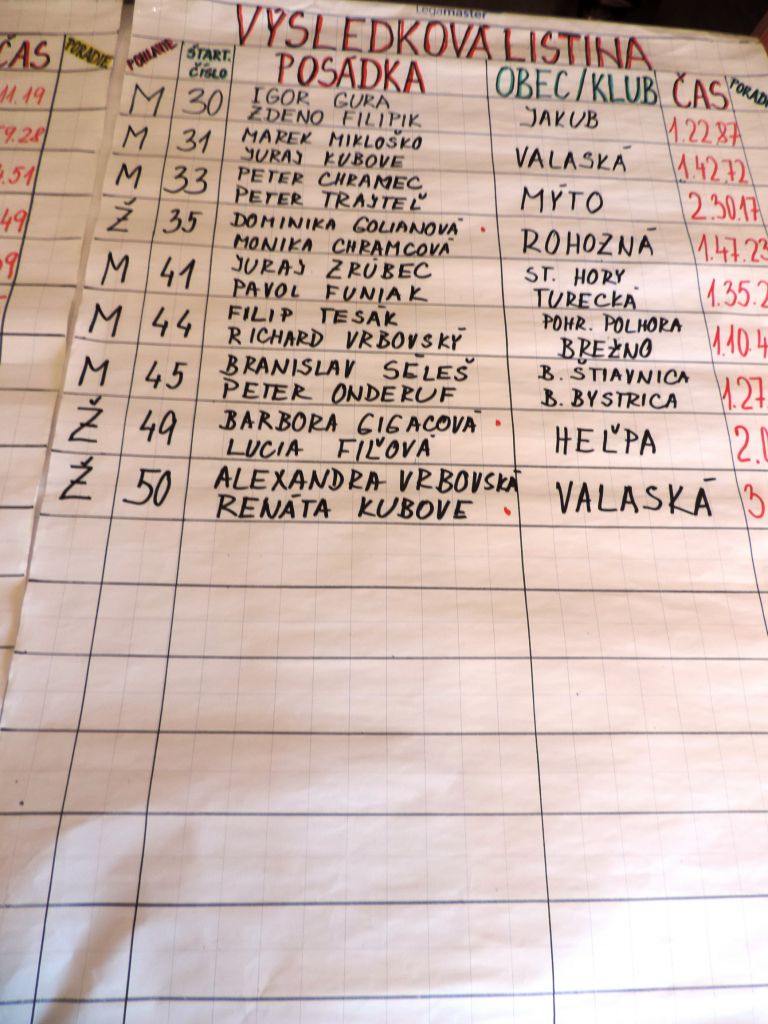 Legamaster
VÝSLEDKOVÁ LISTINA
ČAS PORADIE
POHLAVIE ŠTART. ČÍSLO POSÁDKA OBEC/KLUB ČAS
11.19
M 30 IGOR GURA JAKUB 1.22.87
ZDENO FILIPIK
9.28
M 31 MAREK MIKLOŠKO VALASKÁ 1.42.72
JURAJ KUBOVE
.51
M 33 PETER CHRAMEC MÝTO 2.30.17
PETER TRAJTEĽ
49
Ž 35 DOMINIKA GOLIANOVÁ ROHOZNÁ 1.47.23
MONIKA CHRAMCOVÁ
9
M 41 JURAJ ZRÚBEC ST. HORY 1.35.2
PAVOL FUNIAK TURECKÁ
M 44 FILIP TESÁK POHR. POLHORA 1.10.4
RICHARD VRBOVSKÝ BREZNO
M 45 BRANISLAV SÉLEŠ B. ŠTIAVNICA 1.27
PETER ONDERUF B. BYSTRICA
Ž 49 BARBORA GIGACOVÁ HEĽPA 2.0
LUCIA FIĽOVÁ
Ž 50 ALEXANDRA VRBOVSKÁ VALASKÁ 3
RENÁTA KUBOVE